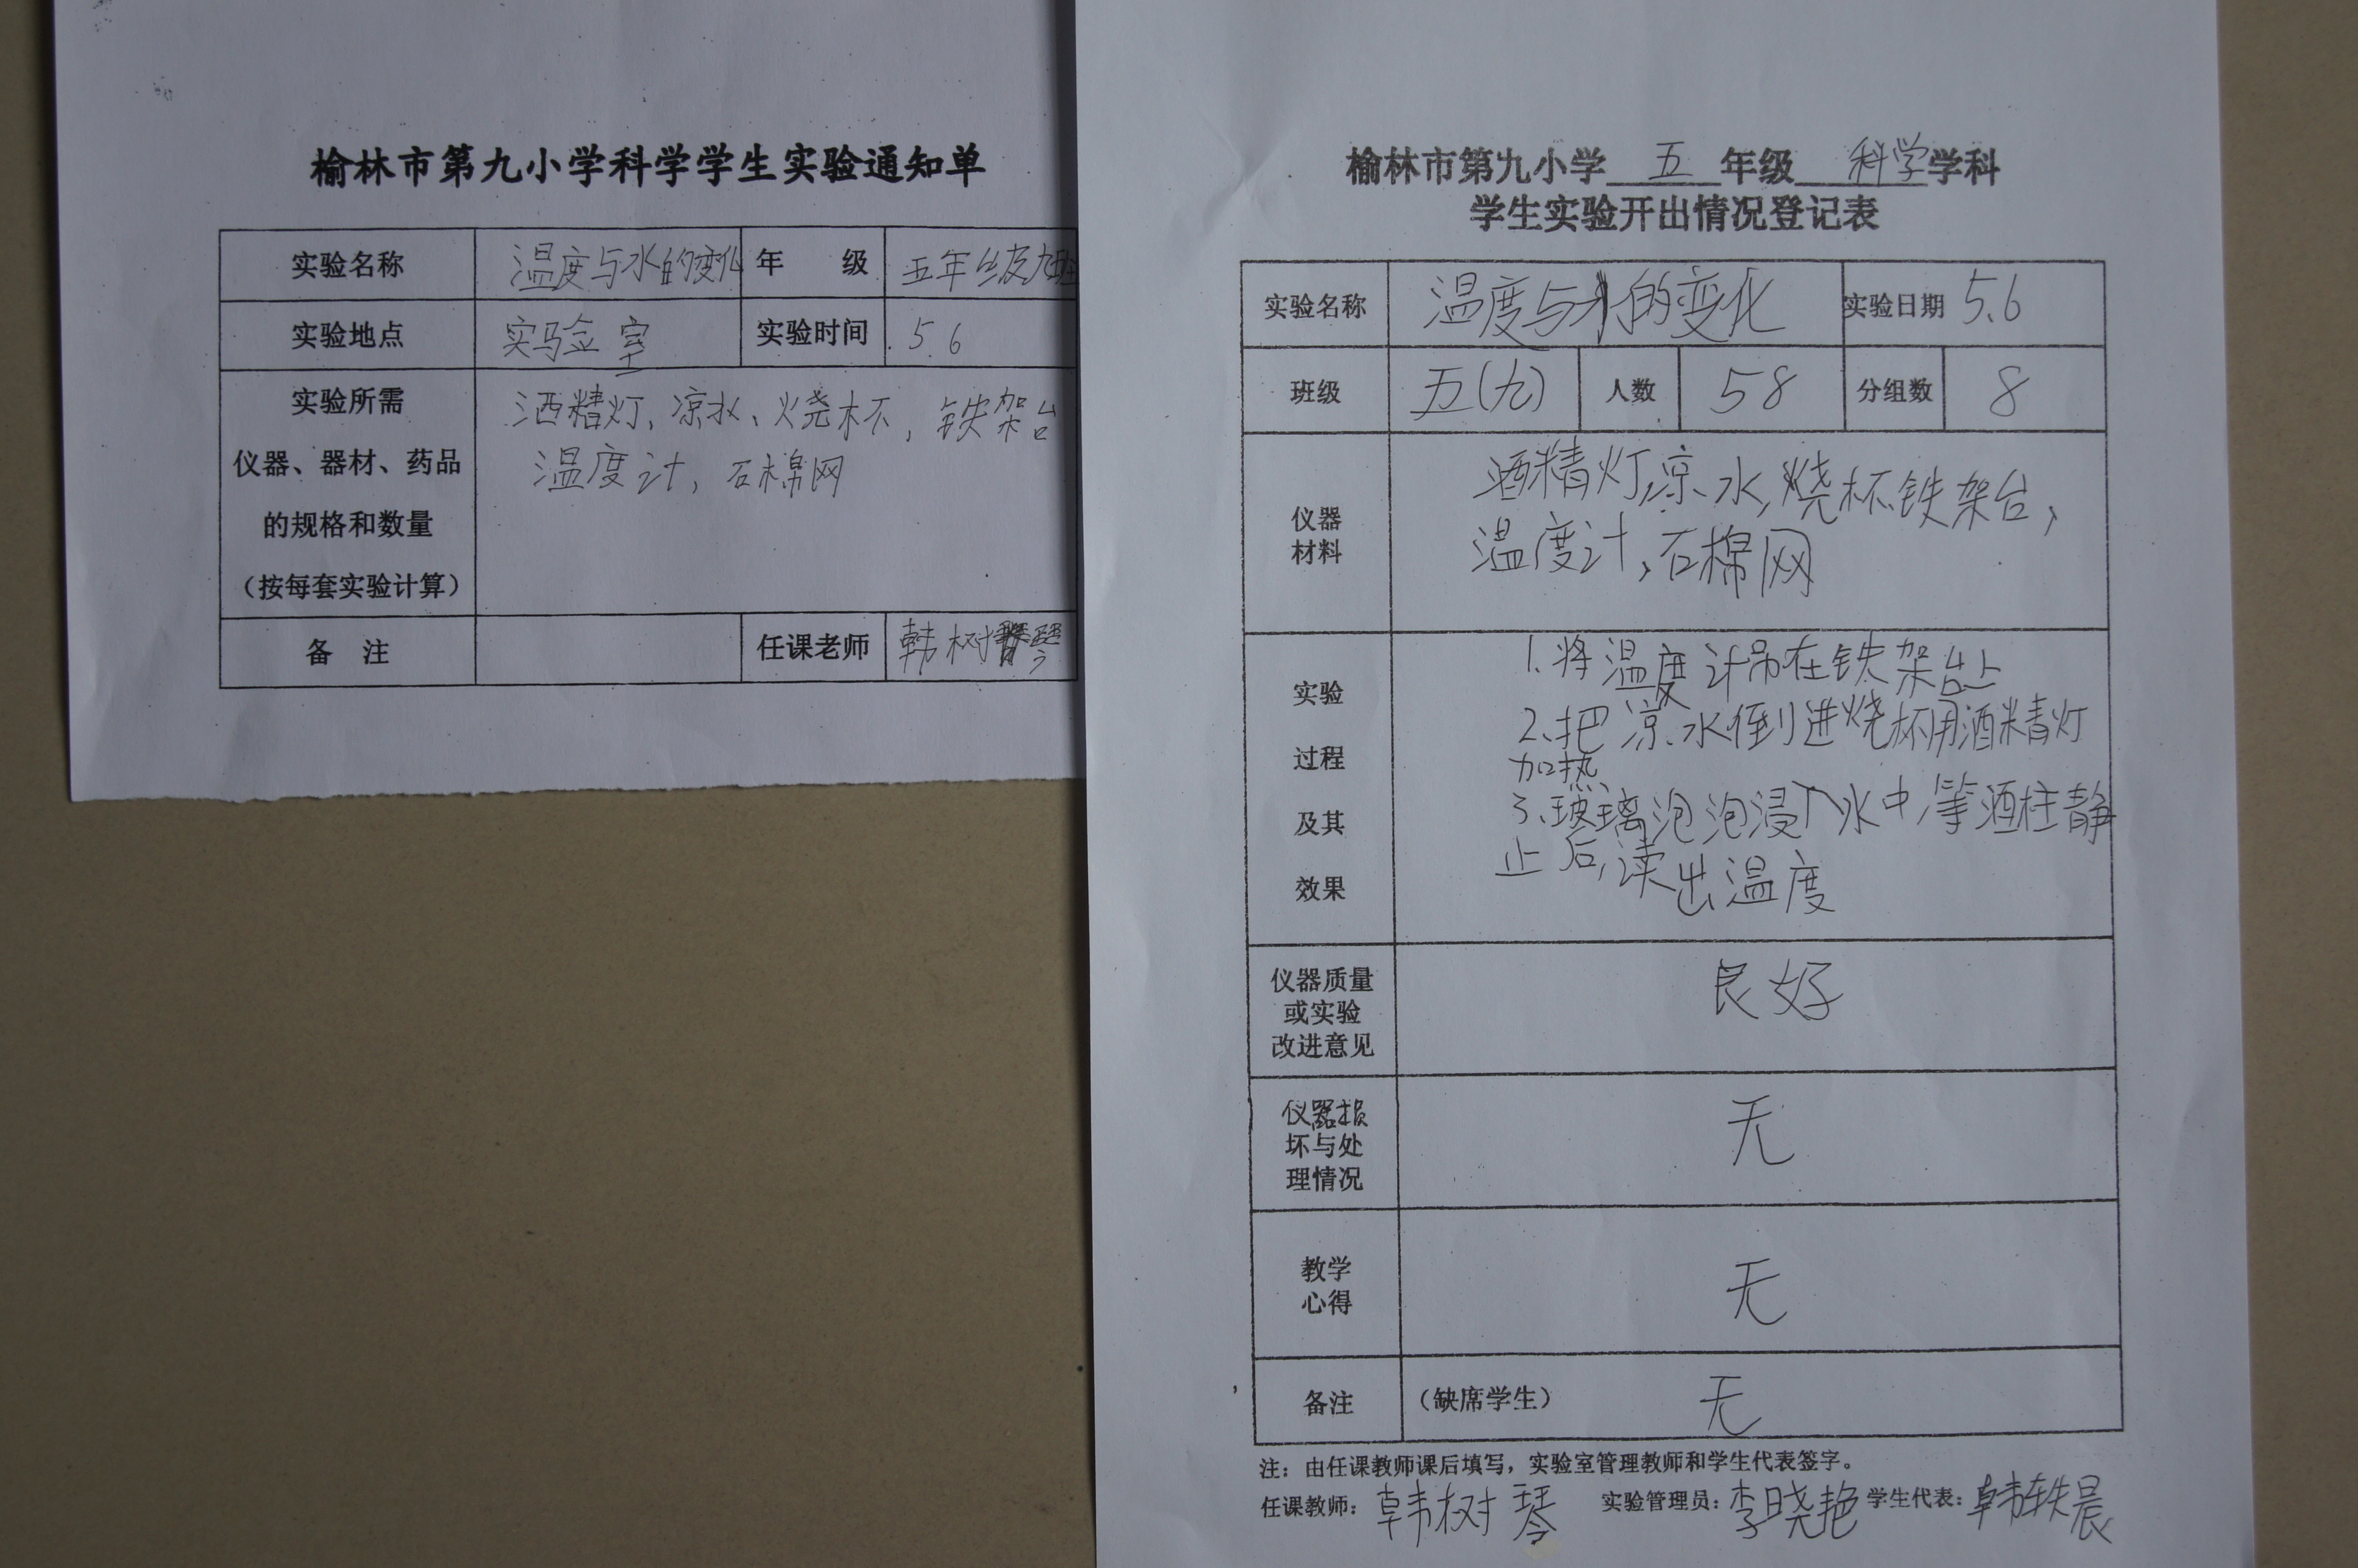 榆林市第九小学科学学生实验通知单
实验名称 温度与水的变化 年 级 五年级九班
实验地点 实验室 实验时间 5.6
实验所需
仪器、器材、药品
的规格和数量
（按每套实验计算）
酒精灯、凉水、烧杯，铁架台
温度计，石棉网
备 注 任课老师 韩树琴
榆林市第九小学 五 年级 科学 学科
学生实验开出情况登记表
实验名称 温度与水的变化 实验日期 5.6
班级 五(九) 人数 58 分组数 8
仪器
材料
酒精灯,凉水,烧杯铁架台,
温度计,石棉网
实验
过程
及其
效果
1.将温度计吊在铁架台上
2、把凉水倒进烧杯用酒精灯
加热
3、玻璃泡泡浸入水中等酒柱静
止后,读出温度
仪器质量
或实验
改进意见
良好
仪器损
坏与处
理情况
无
教学
心得
无
备注 （缺席学生） 无
注：由任课教师课后填写，实验室管理教师和学生代表签字。
任课教师：韩树琴 实验管理员：李晓艳 学生代表：韩轶晨